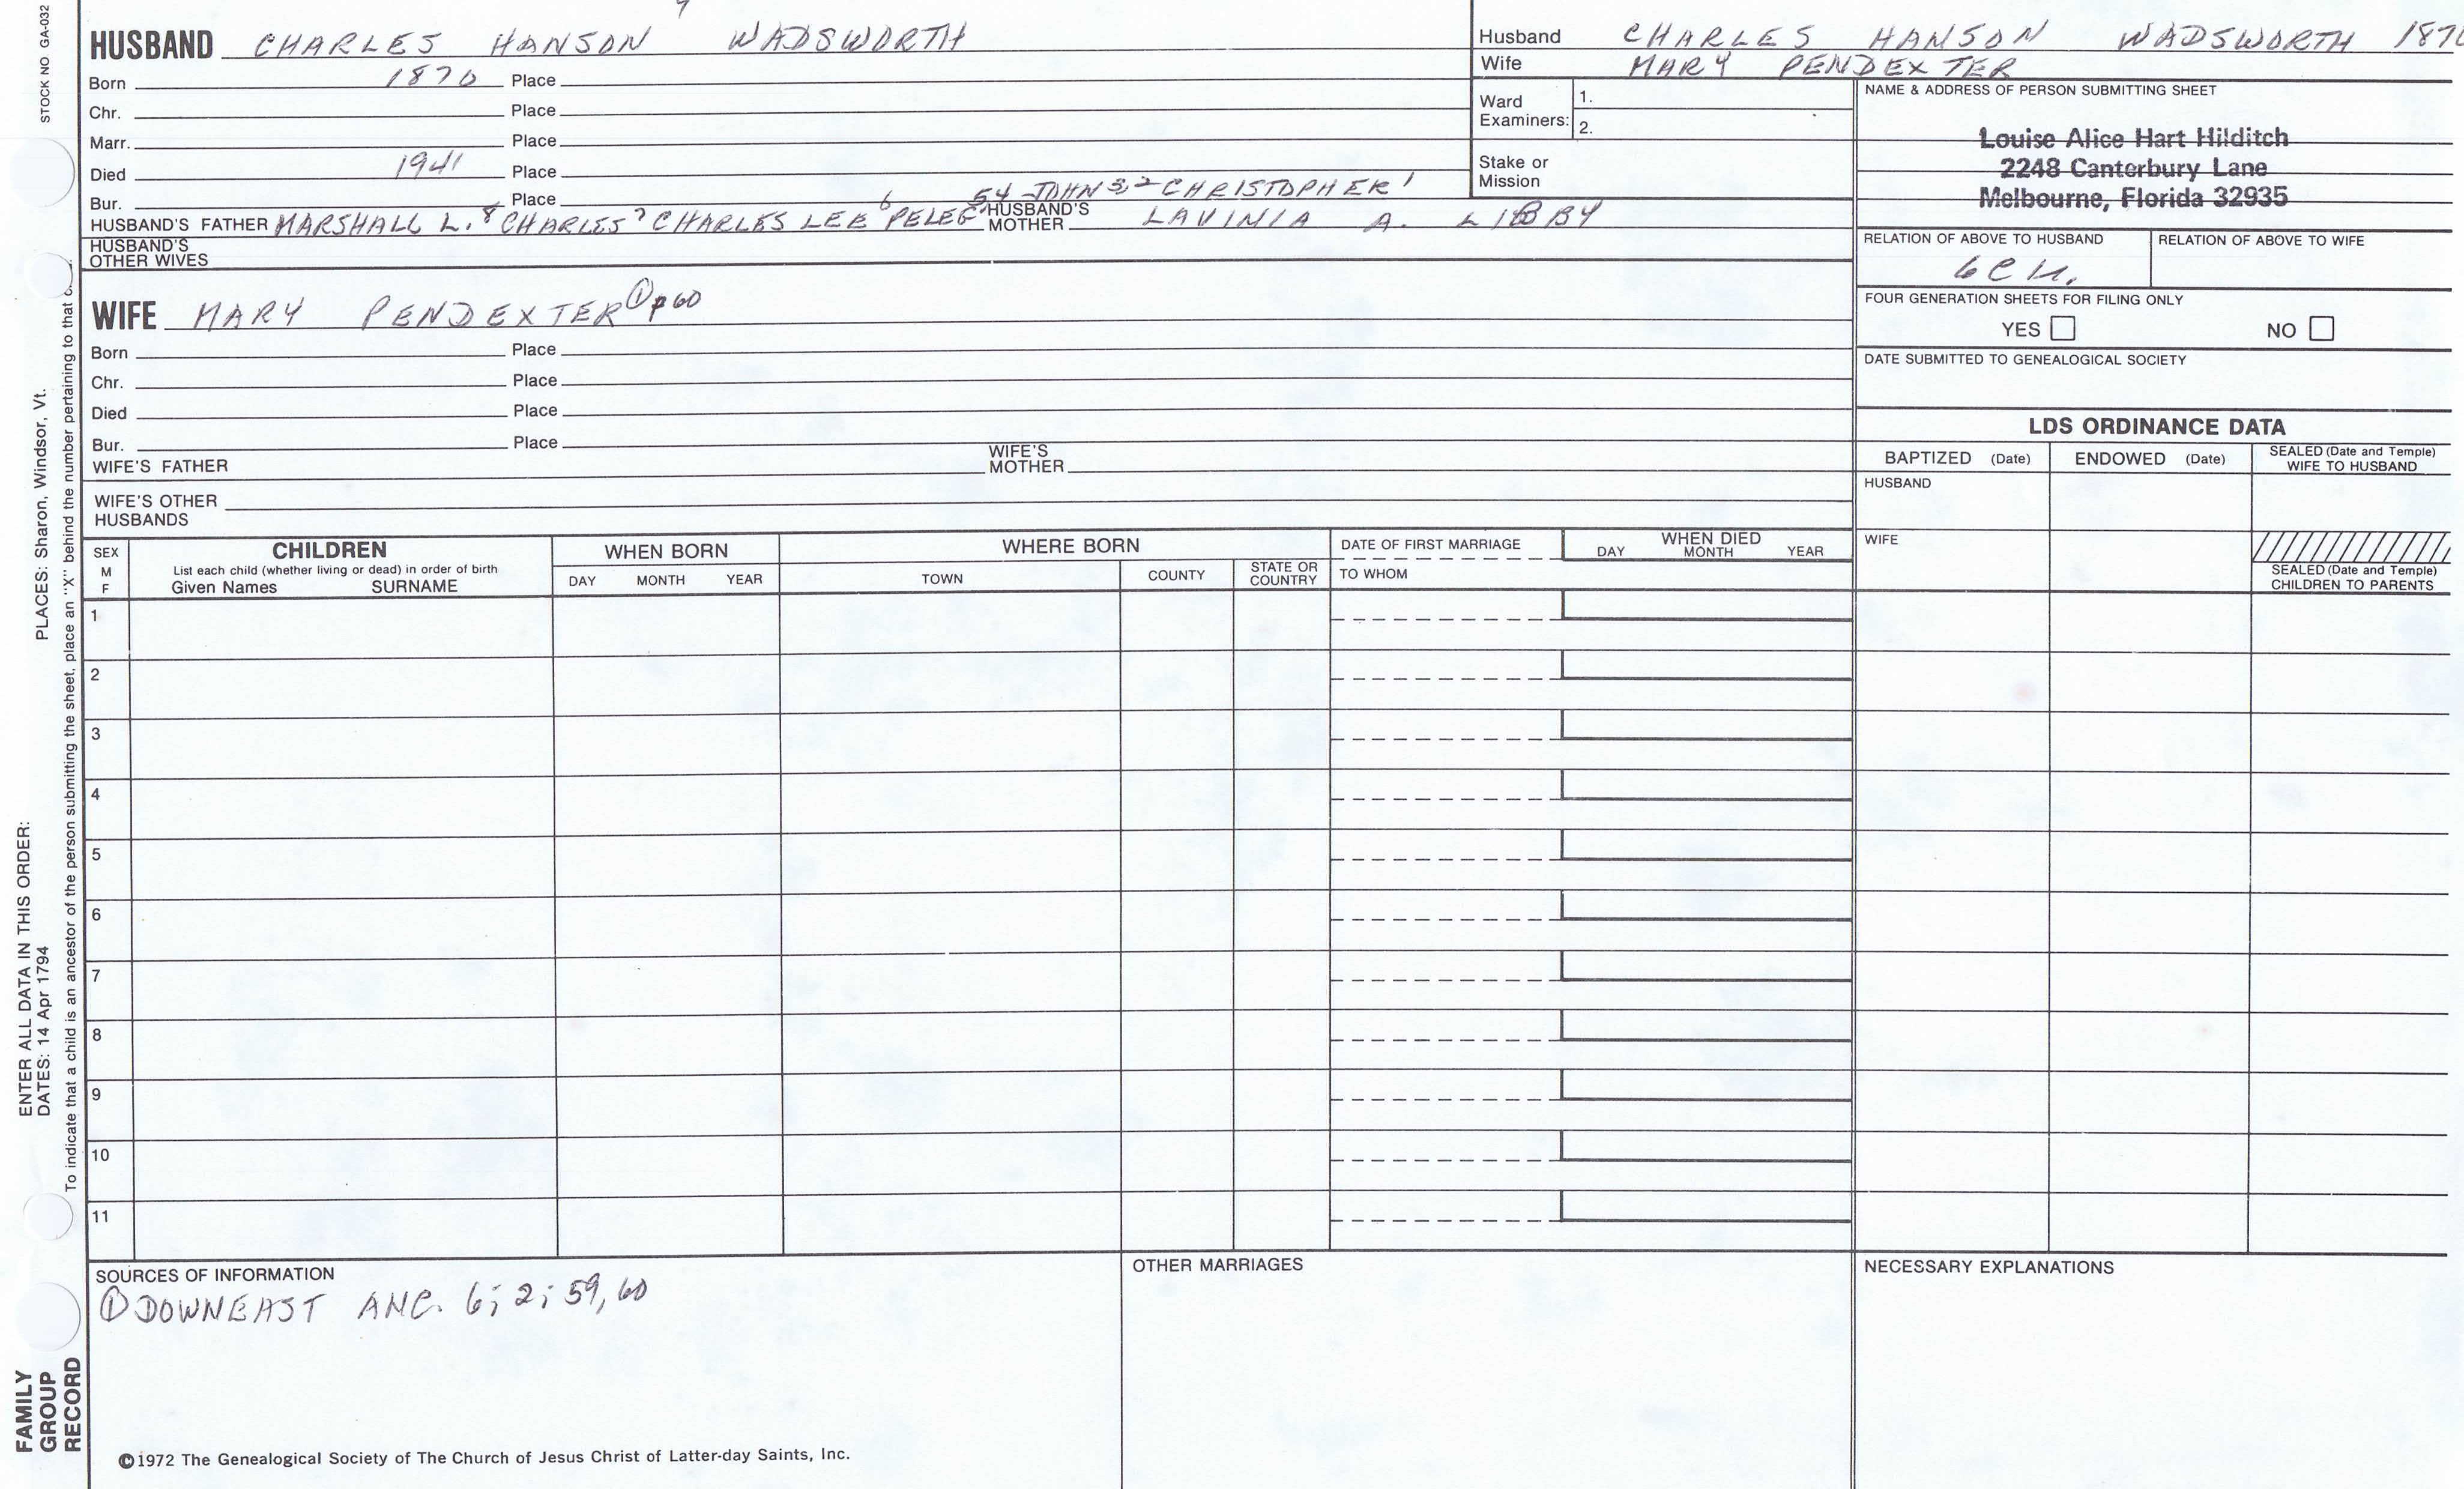 STOCK NO GA-032
PLACES: Sharon, Windsor, Vt.
ENTER ALL DATA IN THIS ORDER:
DATES: 14 Apr 1794
To indicate that a child is an ancestor of the person submitting the sheet, place an "X" behind the number pertaining to that
FAMILY
GROUP
RECORD
9
HUSBAND CHARLES HANSON WADSWORTH
Born 1870 Place
Chr. Place
Marr. Place
Died 1941 Place
Bur. Place
6 54 JOHN 3 2 CHRISTOPHER 1
HUSBAND'S FATHER MARSHALL L. 8 CHARLES 7 CHARLES LEE PELEG HUSBAND'S MOTHER LAVINIA A. LIBBY
HUSBAND'S
OTHER WIVES
WIFE MARY PENDEXTER ① p 60
Born Place
Chr. Place
Died Place
Bur. Place
WIFE'S FATHER WIFE'S MOTHER
WIFE'S OTHER
HUSBANDS
Husband CHARLES HANSON WADSWORTH 1870
Wife MARY PENDEXTER
Ward
Examiners:
1.
2.
Stake or
Mission
NAME & ADDRESS OF PERSON SUBMITTING SHEET
Louise Alice Hart Hilditch
2248 Canterbury Lane
Melbourne, Florida 32935
RELATION OF ABOVE TO HUSBAND RELATION OF ABOVE TO WIFE
FOUR GENERATION SHEETS FOR FILING ONLY
YES NO
DATE SUBMITTED TO GENEALOGICAL SOCIETY
LDS ORDINANCE DATA
BAPTIZED (Date) ENDOWED (Date) SEALED (Date and Temple)
WIFE TO HUSBAND
HUSBAND
WIFE
SEALED (Date and Temple)
CHILDREN TO PARENTS
SEX
M
F
CHILDREN
List each child (whether living or dead) in order of birth
Given Names SURNAME
WHEN BORN
DAY MONTH YEAR
WHERE BORN
TOWN COUNTY STATE OR COUNTRY
DATE OF FIRST MARRIAGE
TO WHOM
WHEN DIED
DAY MONTH YEAR
1
2
3
4
5
6
7
8
9
10
11
SOURCES OF INFORMATION
① DOWNEAST ANC. 6; 2; 59, 60
OTHER MARRIAGES
NECESSARY EXPLANATIONS
©1972 The Genealogical Society of The Church of Jesus Christ of Latter-day Saints, Inc.